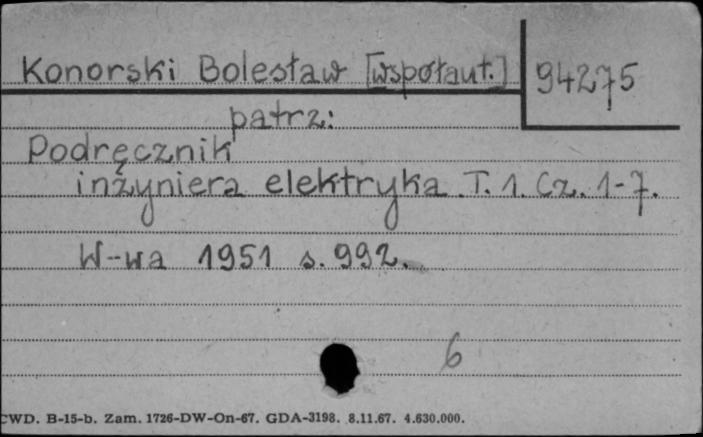 Konorski Bolesław [współaut.] 94275
patrz:
Podręcznik
inżyniera elektryka. T. 1. Cz. 1-7.
W-wa 1951 s. 992.
6
CWD. B-15-b. Zam. 1726-DW-On-67. GDA-3198. 8.11.67. 4.630.000.